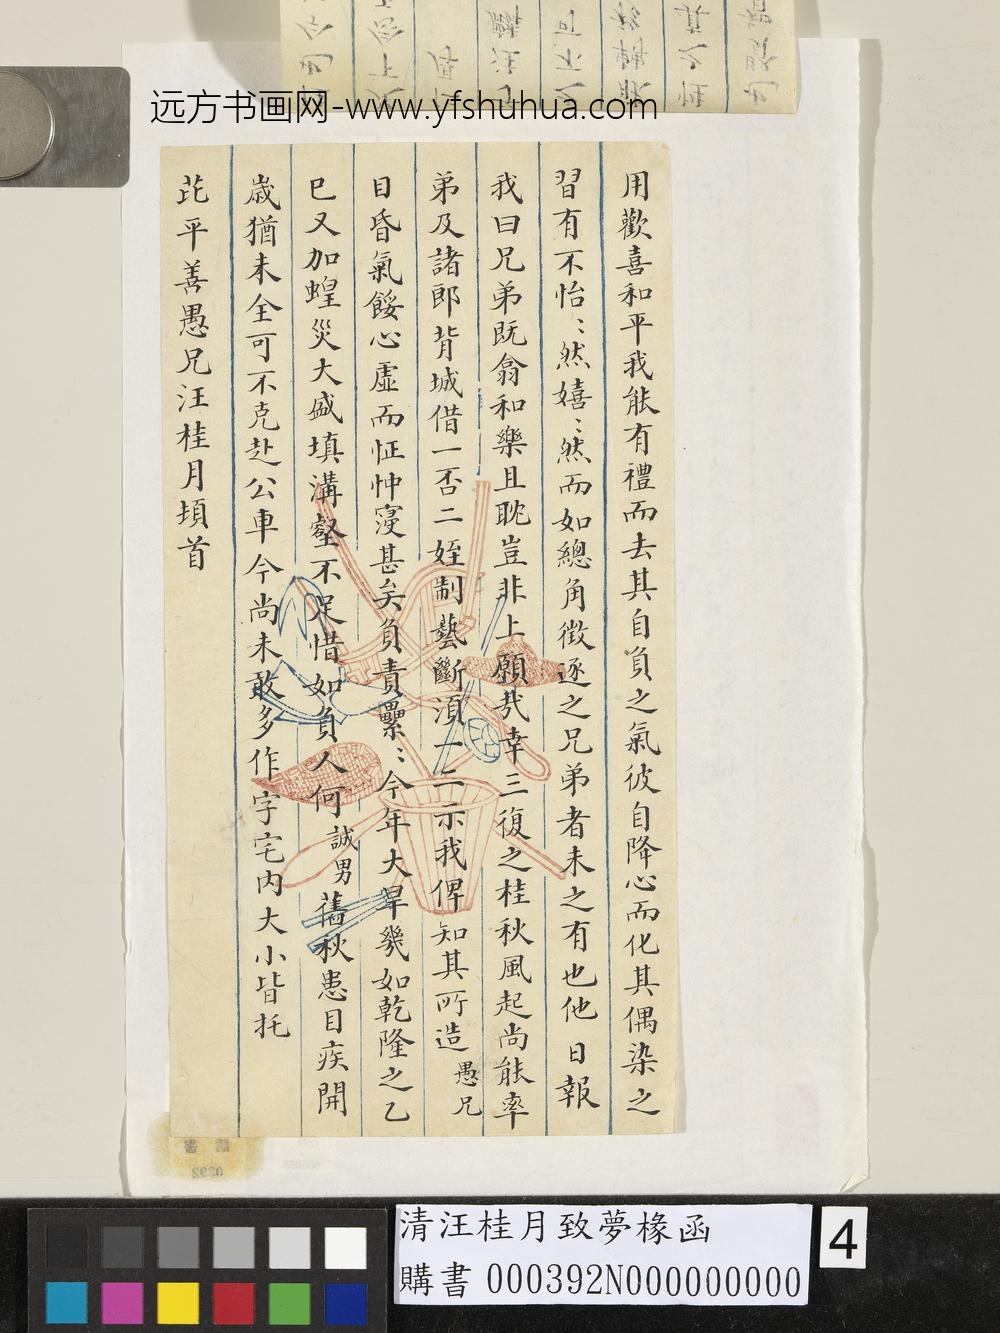 远方书画网-www.yfshuhua.com
用歡喜和平我能有禮而去其自負之氣彼自降心而化其偶染之
習有不怡〻然嬉〻然而如總角徵逐之兄弟者未之有也他日報
我曰兄弟既翕和樂且耽豈非上願哉幸三復之桂秋風起尚能率
弟及諸郎背城借一否二姪制藝斷湏一二示我俾知其所造愚兄
目昏氣餒心虛而怔忡寖甚矣負責纍〻今年大旱幾如乾隆之乙
巳又加蝗災大盛填溝壑不足惜如負人何誠男舊秋患目疾開
歲猶未全可不克赴公車今尚未敢多作字宅內大小皆托
芘平善愚兄汪桂月頓首
清汪桂月致夢椽函
購書 000392N000000000
4